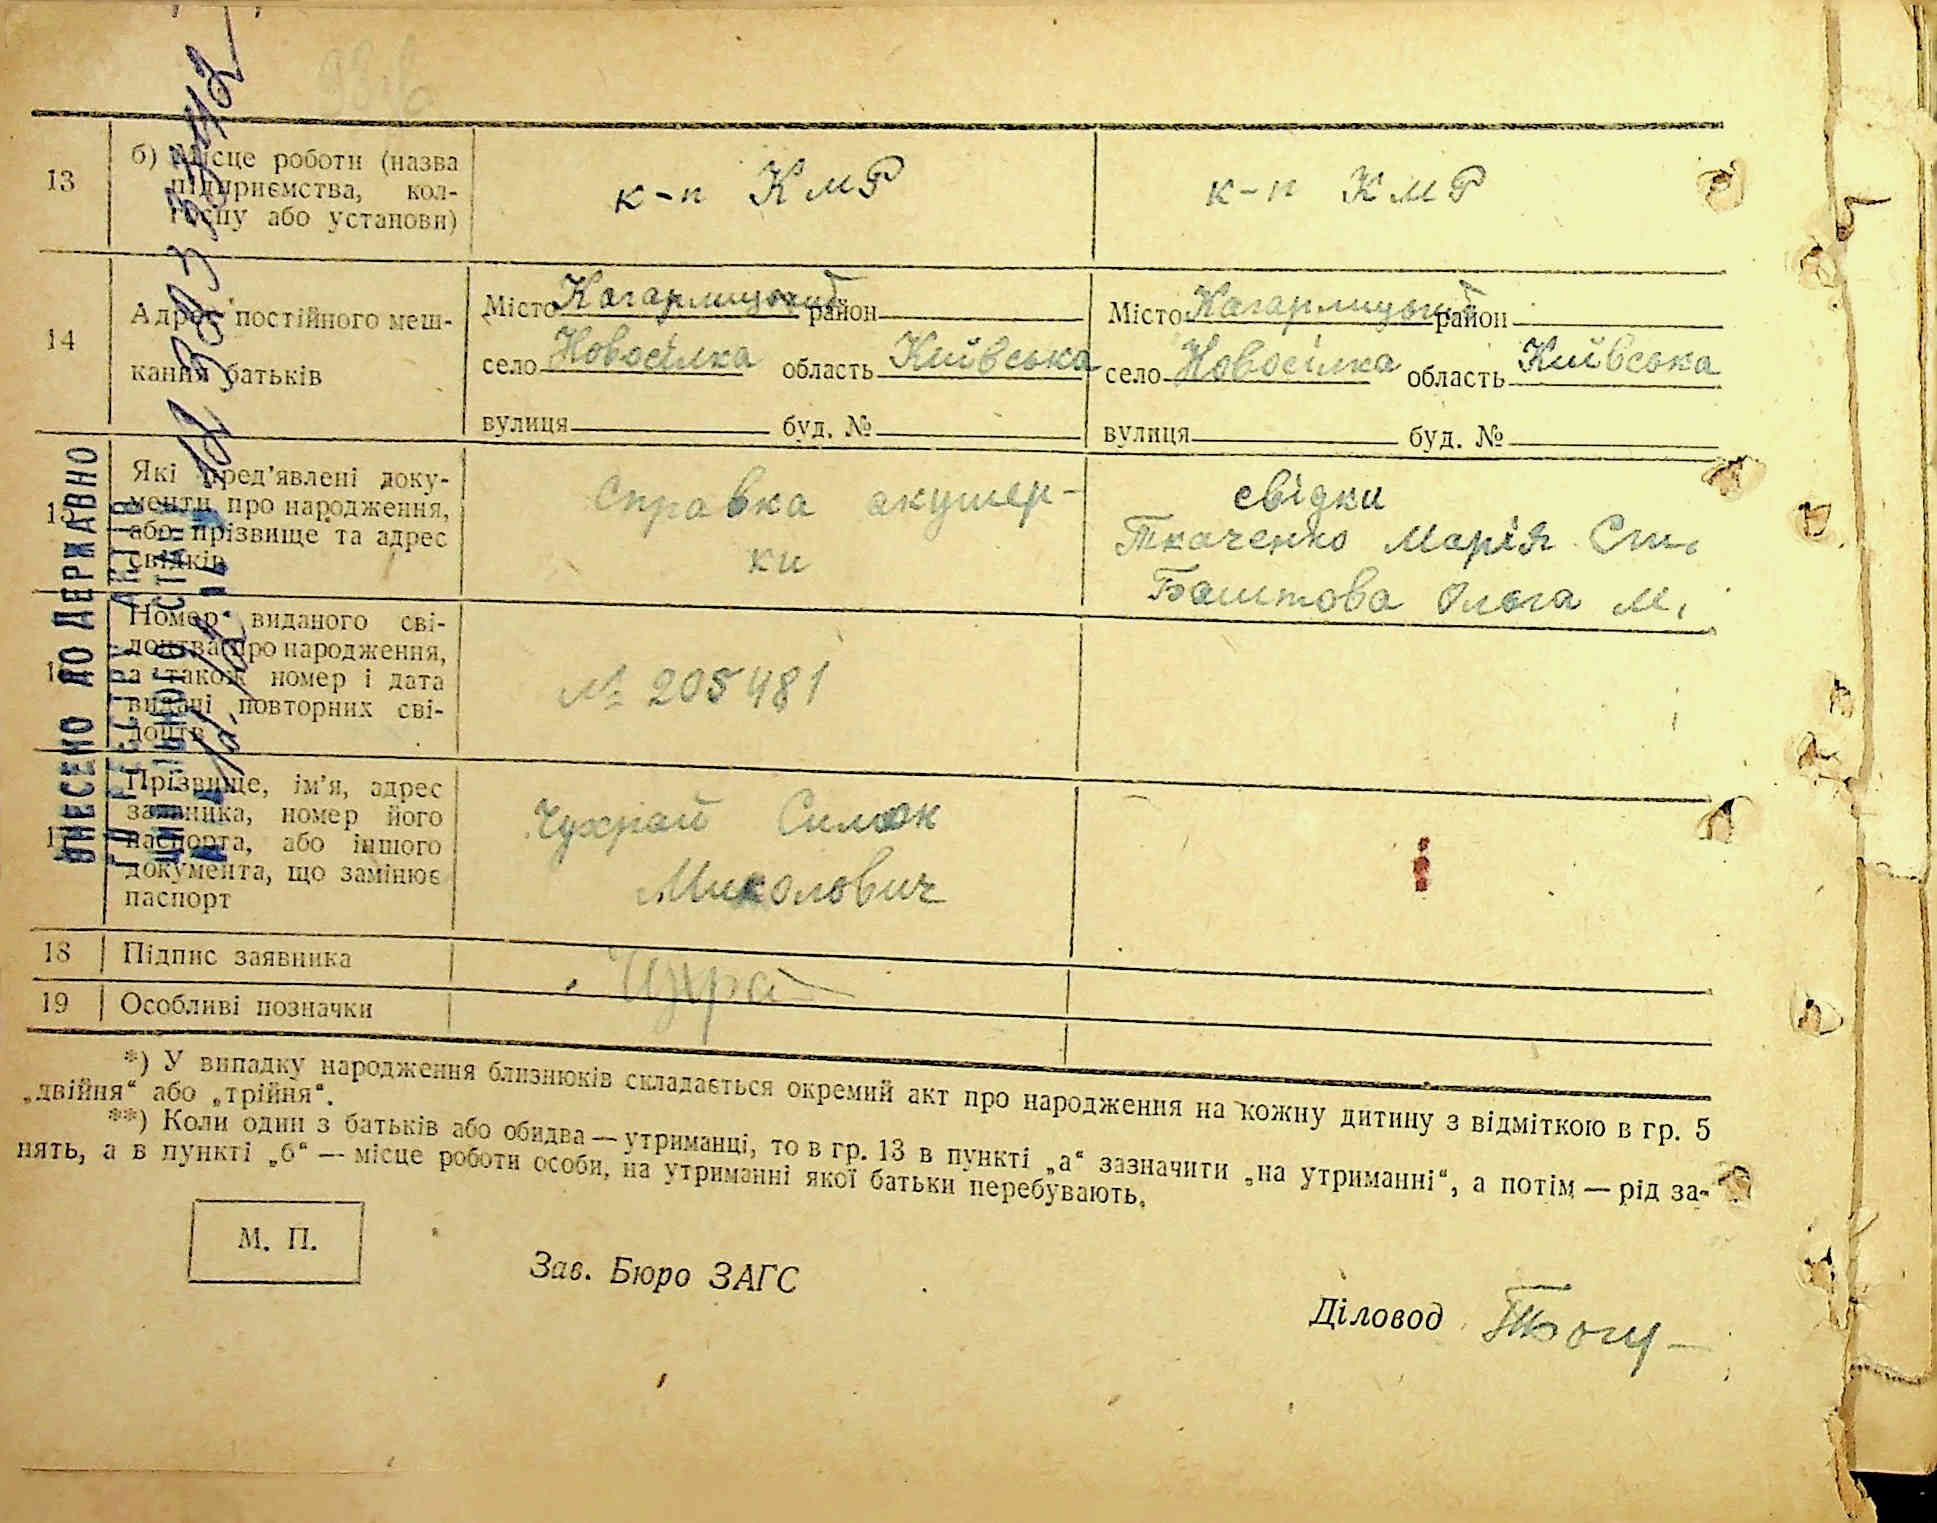 13
б) Місце роботи (назва
підприємства, кол-
госпу або установи)
к-п КмР
к-п КмР
14
Адрес постійного меш-
кання батьків
Місто Кагарлицький район
село Новосілка область Київська
вулиця буд. №
Місто Кагарлицький район
село Новосілка область Київська
вулиця буд. №
15
Які пред'явлені доку-
менти про народження,
або прізвище та адрес
свідків
Справка акушер-
ки
свідки
Ткаченко Марія Ст.
Баштова Ольга М.
Номер виданого сві-
доцтва про народження,
а також номер і дата
видачі повторних сві-
доцтв
№ 205481
Прізвище, ім'я, адрес
заявника, номер його
паспорта, або іншого
документа, що замінює
паспорт
Чухрай Симон
Миколович
18
Підпис заявника
Чухра
19
Особливі позначки
ВНЕСЕНО ДО ДЕРЖАВНО
ГО РЕЄСТРУ АКТІВ
ЦИВІЛЬНОГО СТАНУ
*) У випадку народження близнюків складається окремий акт про народження на кожну дитину з відміткою в гр. 5
„двійня“ або „трійня“.
**) Коли один з батьків або обидва — утриманці, то в гр. 13 в пункті „а“ зазначити „на утриманні“, а потім — рід за-
нять, а в пункті „б“ — місце роботи особи, на утриманні якої батьки перебувають.
М. П.
Зав. Бюро ЗАГС
Діловод